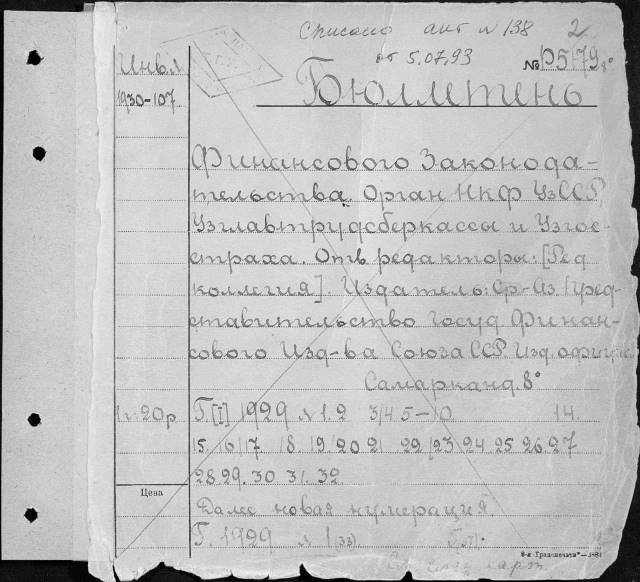 Списано акт № 138 2
от 5.07.93
№ Р5179
Инв.
1930-107
Бюллетень
Финансового Законода-
тельства. Орган НКФ УзССР
Узглавтрудсберкассы и Узгос-
страха. Отв. редакторы: [Ред
коллегия]. Издатель: Ср-Аз. Пред-
ставительство Госуд. Финан-
сового Изд-ва Союза ССР. Изд. офиц.
Самарканд. 8°
20р Г. [I] 1929 № 1. 2 3/4 5-10. 14.
15. 16/17 18. 19. 20 21 22/23. 24. 25 26. 27
28. 29. 30 31. 32.
Цена
Далее новая нумерация.
Г. 1929 № 1 (33)